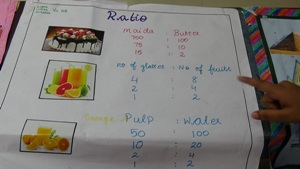 Ratio
Maida : Butter
700 : 100
75 : 10
15 : 2
No of glasses : No of fruits
4 : 8
2 : 4
1 : 2
Orange : Pulp : Water
50 : 100
10 : 20
2 : 4
1 : 2